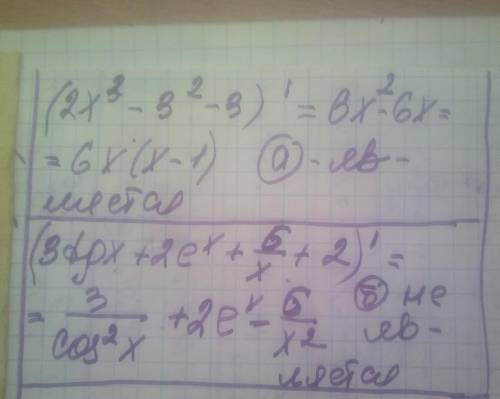 (2x³ - 3² - 3)' = 6x² - 6x =
= 6x(x - 1) (а) - яв -
ляется
(3tgx + 2eˣ + 6/x + 2)' =
= 3/cos²x + 2eˣ - 6/x² (б) не
яв -
ляется